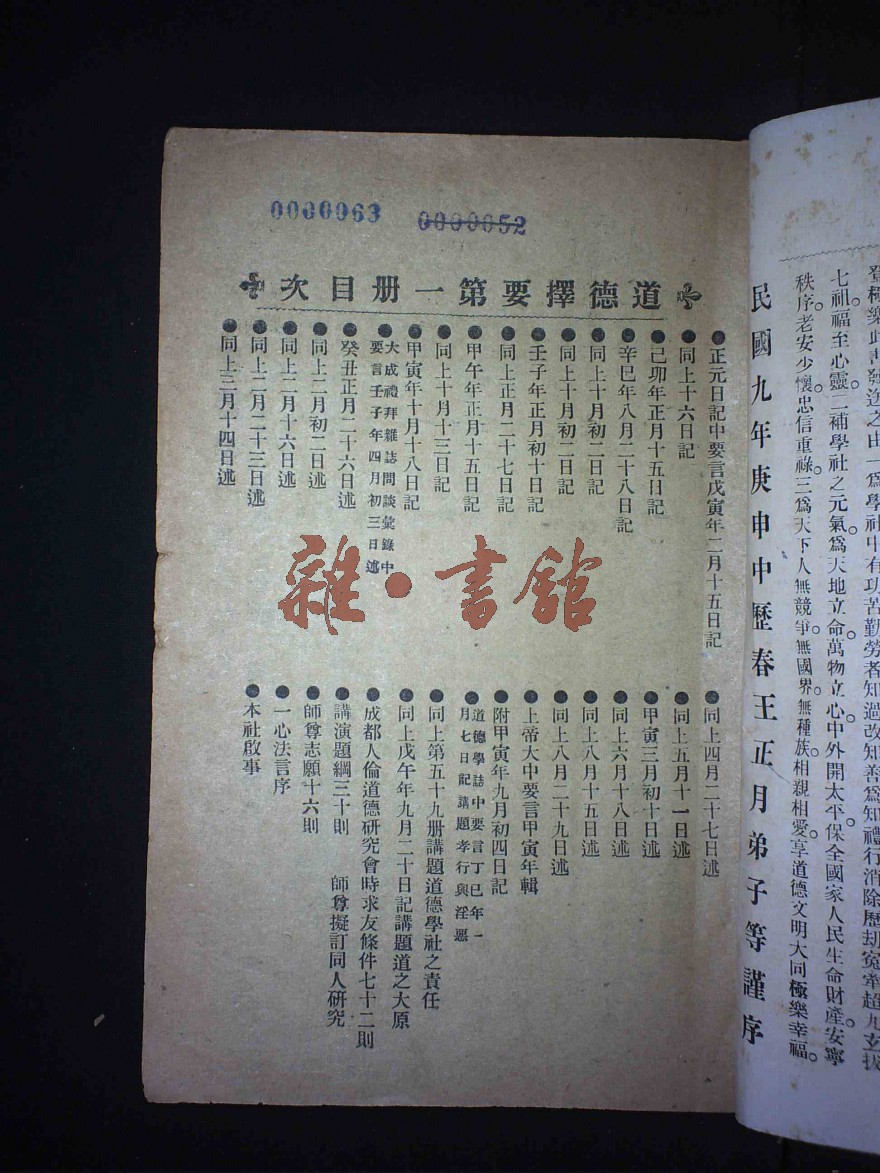 登極樂此書發迻之由一爲學社中有功苦勤勞者知過改知善爲知禮行消除歷刧寃牽超九玄拔
七祖福至心靈二補學社之元氣爲天地立命萬物立心中外開太平保全國家人民生命財產安寧
秩序老安少懷忠信重祿三爲天下人無競爭無國界無種族相親相愛享道德文明大同極樂幸福
民國九年庚申中歷春王正月弟子等謹序
0000063
0000052
道德擇要第一册目次
●正元日記中要言戊寅年二月十五日記
●同上十六日記
●己卯年正月十五日記
●辛巳年八月二十八日記
●同上十月初二日記
●同上十月初二日記
●壬子年正月初十日記
●同上正月二十七日記
●甲午年正月十五日記
●同上十月十三日記
●甲寅年十月十八日記
●大成禮拜雜誌問談彙錄中
要言壬子年四月初三日述
●癸丑正月二十六日述
●同上二月初二日述
●同上二月十六日述
●同上二月二十三日述
●同上三月十四日述
●同上四月二十七日述
●同上五月十一日述
●甲寅三月初十日述
●同上六月十八日述
●同上八月十五日述
●同上八月二十九日述
●上帝大中要言甲寅年輯
●附甲寅年九月初四日記
●道德學誌中要言丁巳年一
月七日記講題孝行與淫惡
●同上第五十九册講題道德學社之責任
●同上戊午年九月二十日記講題道之大原
●成都人倫道德研究會時求友條件七十二則
●講演題綱三十則 師尊擬訂同人研究
●師尊志願十六則
●一心法言序
●本社啟事
雜·書館